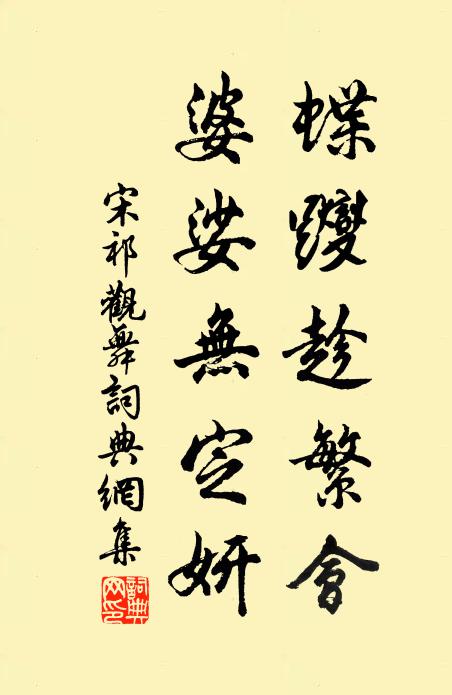 蝶躞趁繁會
婆娑無定妍
宋祁觀舞詞典網集
詞典網印